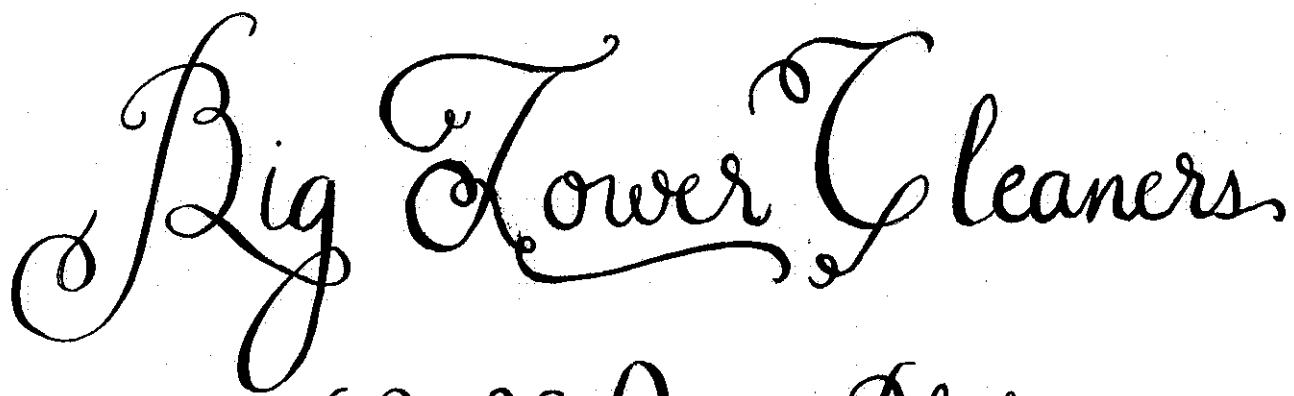 Big Tower Cleaners